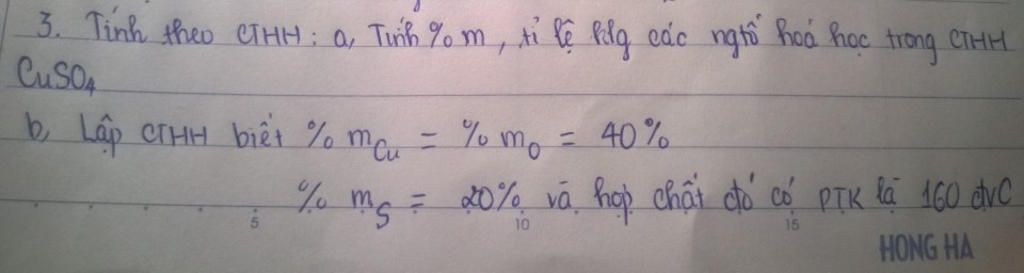 3. Tính theo CTHH: a, Tính %m, tỉ lệ klg các ngtố hoá học trong CTHH
CuSO4
b, Lập CTHH biết % mCu = % mO = 40%
% mS = 20% và hợp chất đó có PTK là 160 đvC
5 10 15
HONG HA